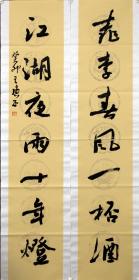 桃李春風一杯酒
江湖夜雨十年燈
癸卯